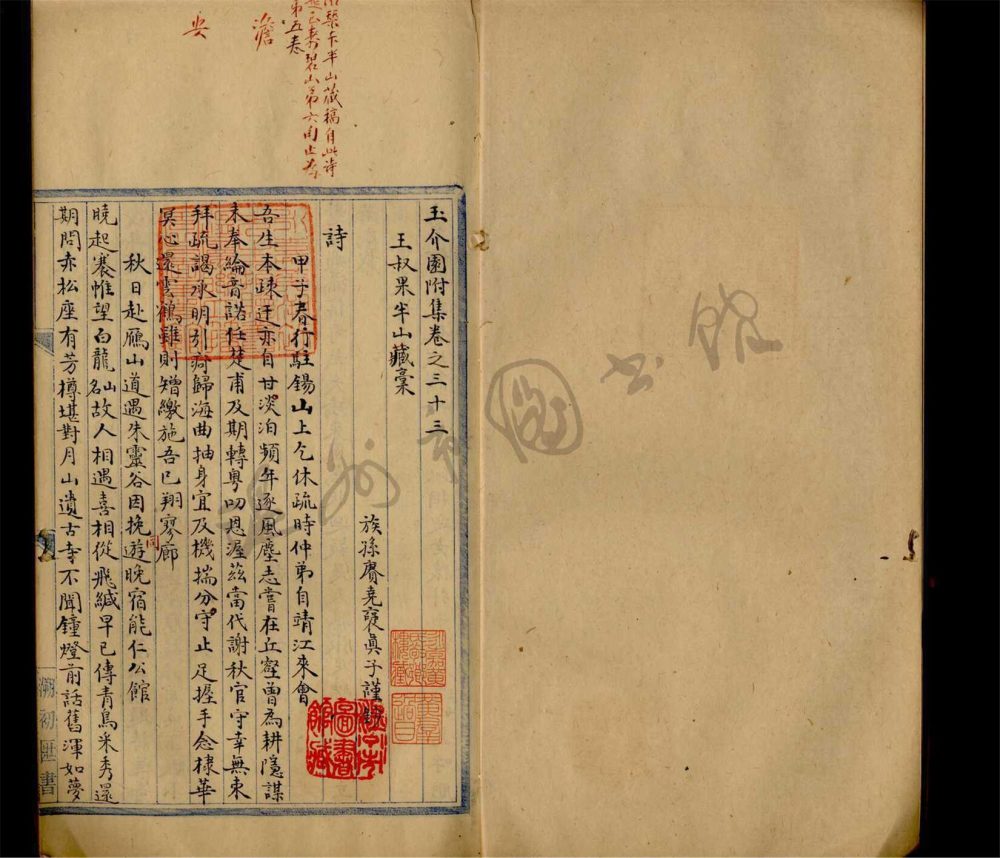 玉介園附集卷之三十三
王叔果半山藏稾
族孫賡堯褒眞子謹
詩
甲子春行駐錫山上乞休疏時仲弟自靖江來會
吾生本疎迂亦自甘淡泊頻年逐風塵志嘗在丘壑曽為耕隱謀
未奉綸音諾任楚甫及期轉粤叨恩渥茲當代謝秋官守幸無束
拜疏謁承明引疴歸海曲抽身宜及機揣分守止足握手念棣華
冥心還雲鶴雖則矰繳施吾已翔寥廊
秋日赴雁山道遇朱靈谷因挽遊晚宿能仁公館
同
曉起褰帷望白龍山名故人相遇喜相從飛緘早已傳青鳥采秀還
期問赤松座有芳樽堪對月山遺古寺不聞鐘燈前話舊渾如夢
半山藏稿自此诗
碧山第六闋止
第五卷
澹
安
溯初匯書
圖書館藏
州
圖書館